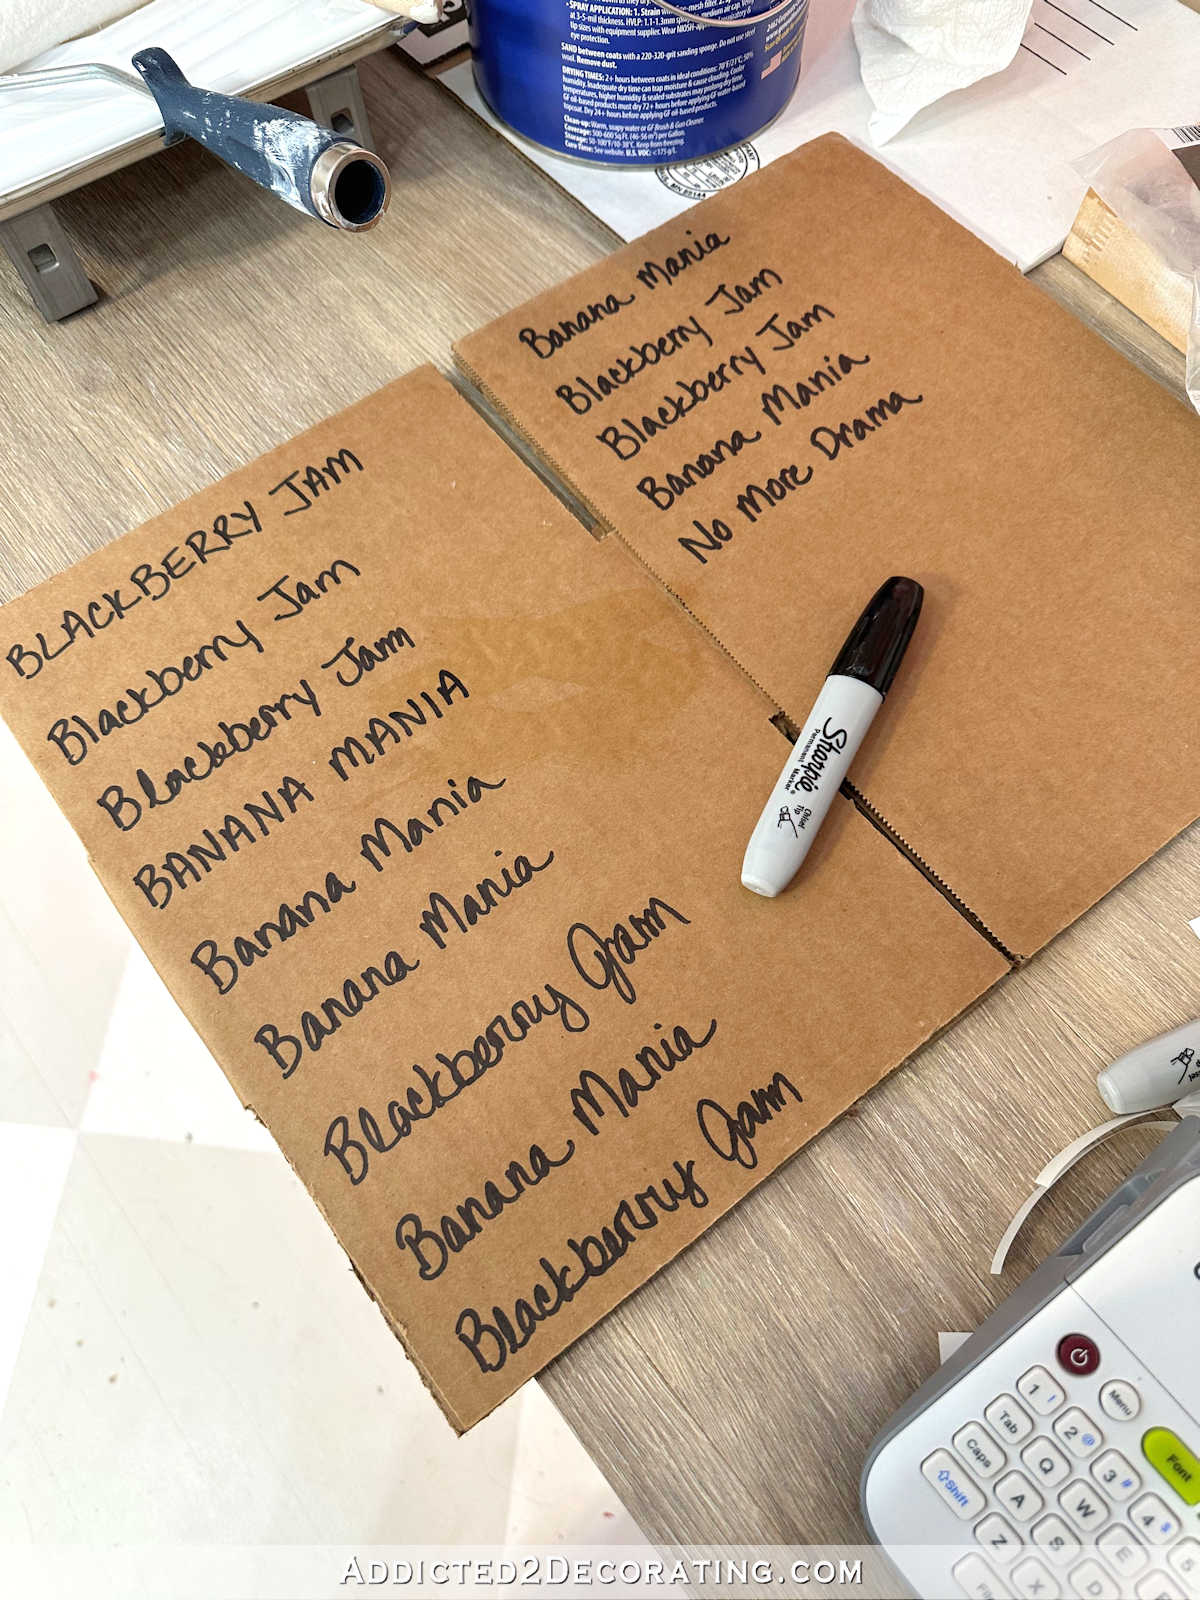 • SPRAY APPLICATION: 1. Strain
at 3-5-mil thickness. HVLP: 1.1-1.3mm
tip sizes with equipment supplier. Wear NIOSH-
eye protection.
SAND between coats with a 220-320-grit sanding sponge. Do not use steel
wool. Remove dust.
DRYING TIMES: 2+ hours between coats in ideal conditions: 70°F/21°C; 50%
humidity. Inadequate dry time can trap moisture & cause clouding. Cooler
temperatures, higher humidity & sealed substrates may prolong dry time.
GF oil-based products must dry 72+ hours before applying GF water-based
topcoat. Dry 24+ hours before applying GF oil-based products.
Clean-up: Warm, soapy water or GF Brush & Gun Cleaner.
Coverage: 500-600 Sq.Ft. (46-56 m²) per Gallon.
Storage: 50-100°F/10-38°C. Keep from freezing.
Cure Time: See website. U.S. VOC: <175 g/L.
Banana Mania
Blackberry Jam
Blackberry Jam
Banana Mania
No More Drama
BLACKBERRY JAM
Blackberry Jam
Blackberry Jam
BANANA MANIA
Banana Mania
Banana Mania
Blackberry Jam
Banana Mania
Blackberry Jam
Sharpie
Permanent Marker
Chisel
Tip
Menu
Font
1 !
2 @
3 #
4 $
5
Tab
Q
W
E
Caps
A
S
D
Shift
Z
X
ADDICTED2DECORATING.COM